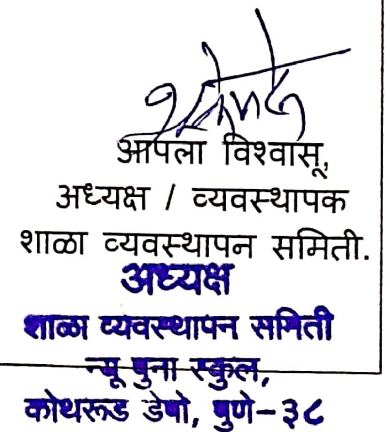 आपला विश्वासू,
अध्यक्ष / व्यवस्थापक
शाळा व्यवस्थापन समिती.
अध्यक्ष
शाळा व्यवस्थापन समिती
न्यू पुना स्कुल,
कोथरूड डेपो, पुणे-३८